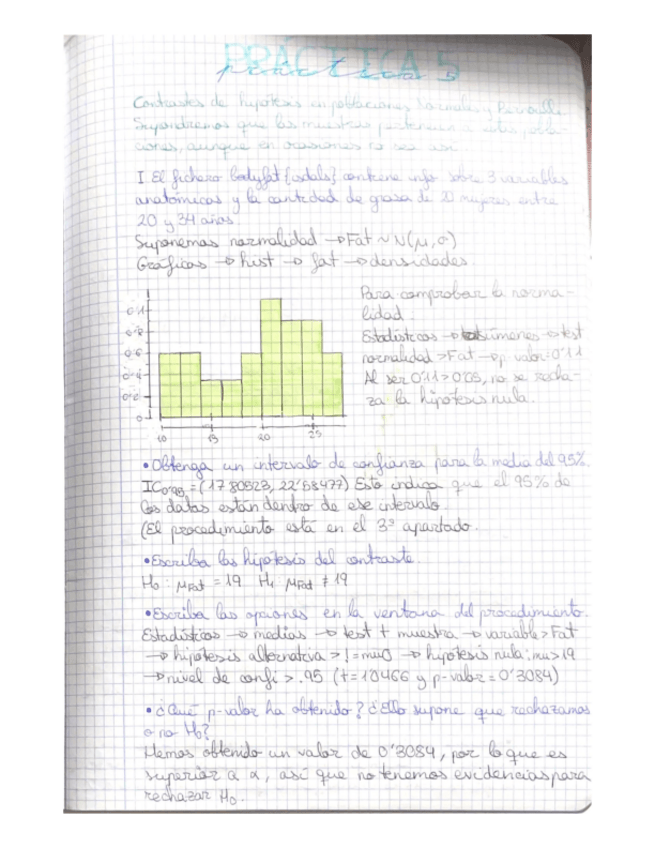 PRÁCTICA 5
práctica 5
Contrastes de hipótesis en poblaciones Normales y Bernoulli.
Supondremos que las muestras pertenecen a estas pobla-
ciones, aunque en ocasiones no sea así.
I El fichero bodyfat {asdals} contiene info sobre 3 variables
anatómicas y la cantidad de grasa de 20 mujeres entre
20 y 34 años.
Suponemos normalidad → Fat ~ N(μ, σ)
Gráficos → hist → fat → densidades.
Para comprobar la norma-
lidad.
Estadísticos → resúmenes → test
normalidad > Fat → p-valor: 0'11
Al ser 0'11 > 0'05, no se recha-
za la hipótesis nula.
0'1
0'8
0'6
0'4
0'2
0
10 15 20 25
• Obtenga un intervalo de confianza para la media del 95%.
IC0'95 = (17'80523, 22'58477) Esto indica que el 95% de
los datos están dentro de ese intervalo
(El procedimiento está en el 3º apartado.
• Escriba las hipótesis del contraste.
H0: μFat = 19 H1 μFat ≠ 19
• Escriba las opciones en la ventana del procedimiento.
Estadísticos → medias → test t muestra → variable > Fat
→ hipótesis alternativa > != mu0 → hipótesis nula: mu > 19
→ nivel de confi > .95 (t = 1'0466 y p-valor = 0'3084)
• ¿Qué p-valor ha obtenido? ¿Ello supone que rechazamos
o no H0?
Hemos obtenido un valor de 0'3084, por lo que es
superior a α, así que no tenemos evidencias para
rechazar H0.